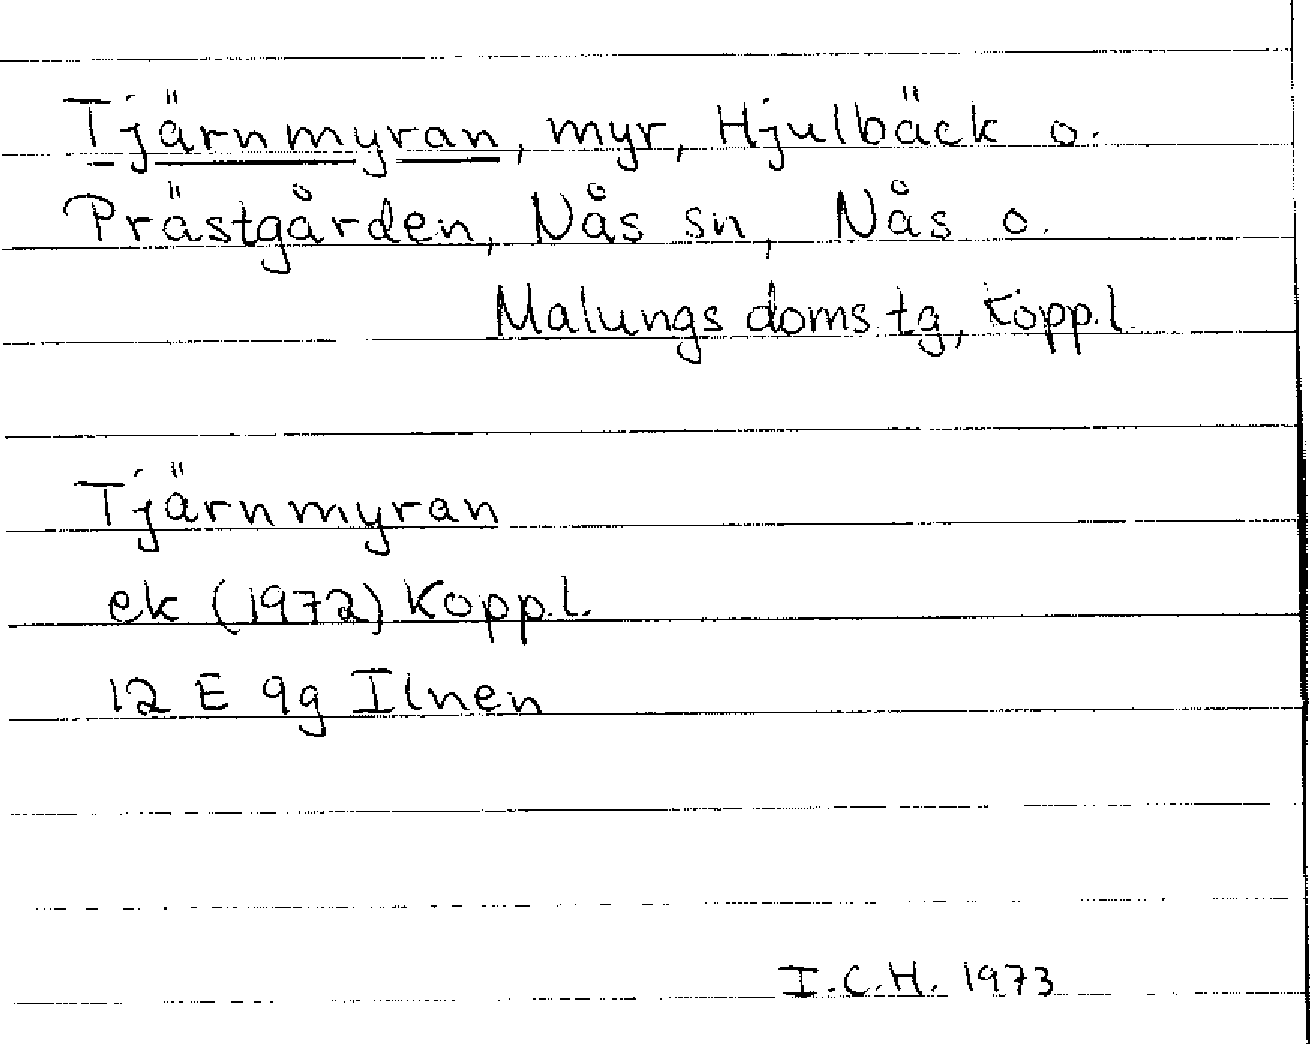 Tjärnmyran, myr, Hjulbäck o.
Prästgården, Nås sn, Nås o.
Malungs doms.tg, Kopp.l.
Tjärnmyran
ek (1972) Kopp.l.
12 E 9g Ilnen
I.C.H. 1973